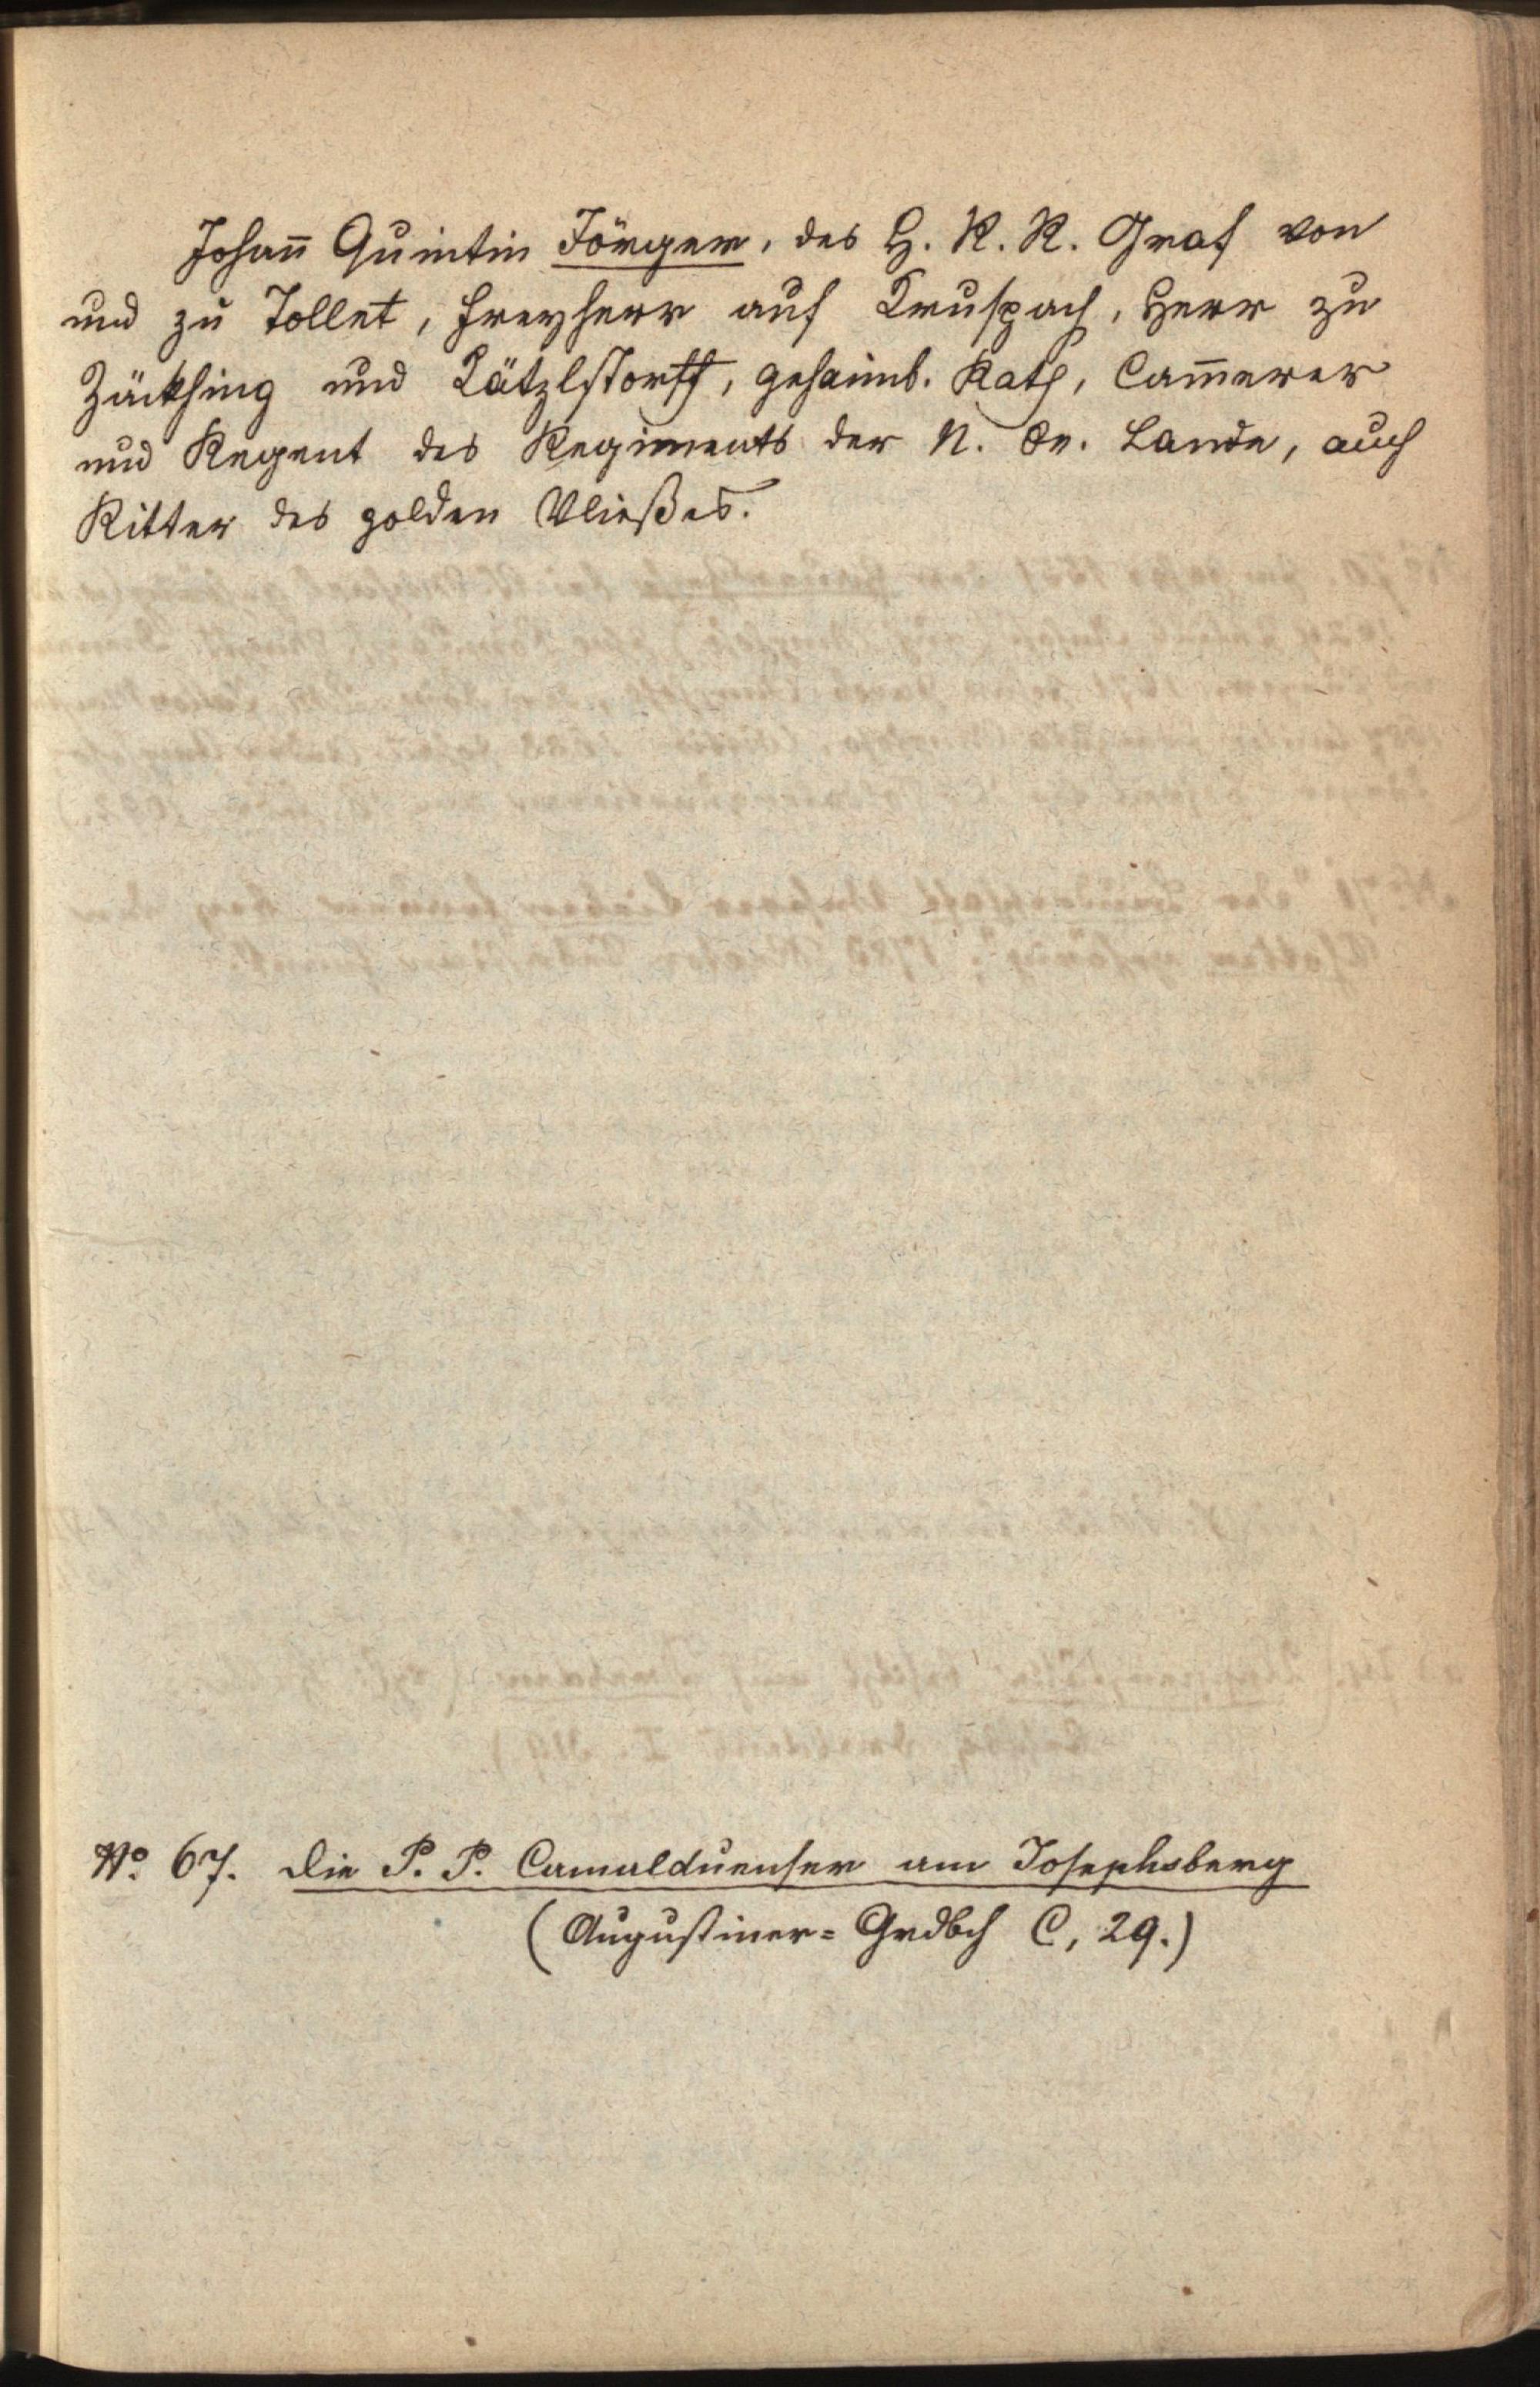 Johan̅ Quintin Jörger, des H. R. R. Graf von
und zu Tollet, Freyherr auf Kreuspach, Herr zu
Zäckhing und Lätzlstorff, gehaimb. Rath, Cam̅erer
und Regent des Regiments der N. Oe. Lande, auch
Ritter des golden Vließes.
No. 67. Die P. P. Camalduenser am Josephsberg
(Augustiner=Grdbch C, 29.)